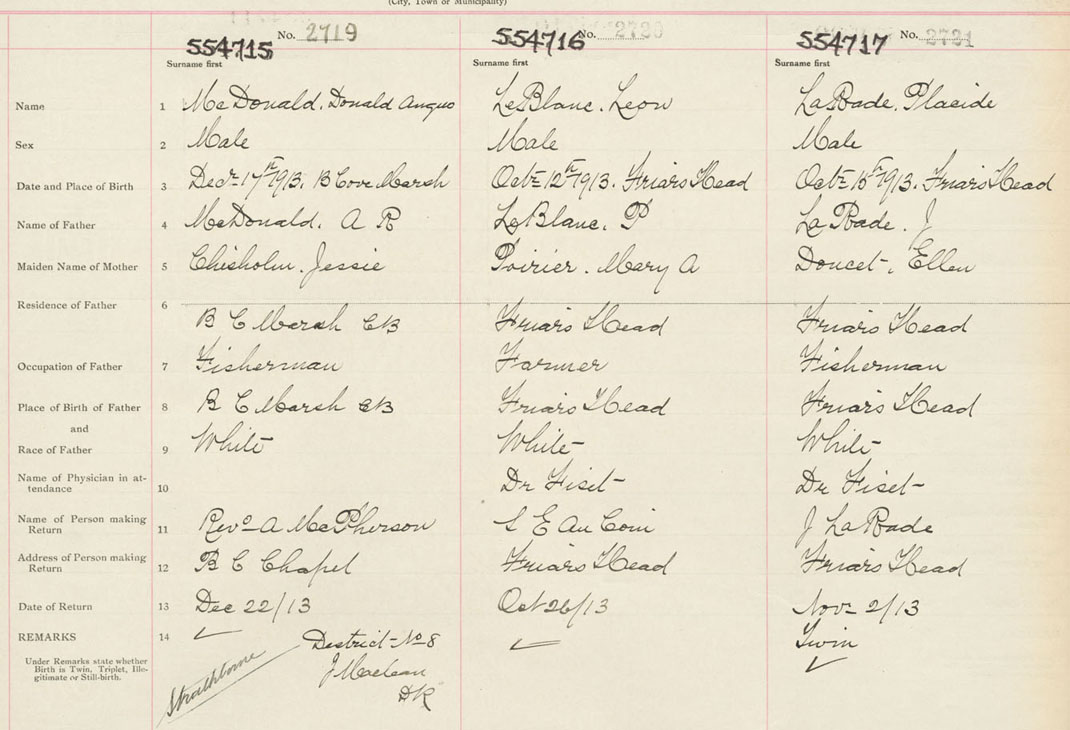 (City, Town or Municipality)
554715 No. 2719 554716 No. 2720 554717 No. 2721
Surname first Surname first Surname first
Name 1 McDonald. Donald Angus LeBlanc. Leon LaBade. Placide
Sex 2 Male Male Male
Date and Place of Birth 3 Decr 17th 1913. B Cove Marsh Octr 12th 1913. Friars Head Octr 15th 1913. Friars Head
Name of Father 4 McDonald. A R LeBlanc. P LaBade. J
Maiden Name of Mother 5 Chisholm. Jessie Poirier. Mary A Doucet, Ellen
Residence of Father 6 B C Marsh CB Friars Head Friars Head
Occupation of Father 7 Fisherman Farmer Fisherman
Place of Birth of Father 8 B C Marsh CB Friars Head Friars Head
and
Race of Father 9 White White White
Name of Physician in at-
tendance 10 Dr Fiset Dr Fiset
Name of Person making
Return 11 Revd A McPherson S E AuCoin J LaBade
Address of Person making
Return 12 B C Chapel Friars Head Friars Head
Date of Return 13 Dec 22/13 Oct 26/13 Nov 2/13
REMARKS 14 District No 8 Twin
Under Remarks state whether
Birth is Twin, Triplet, Ille-
gitimate or Still-birth.
Strathlorne J Maclean
DR